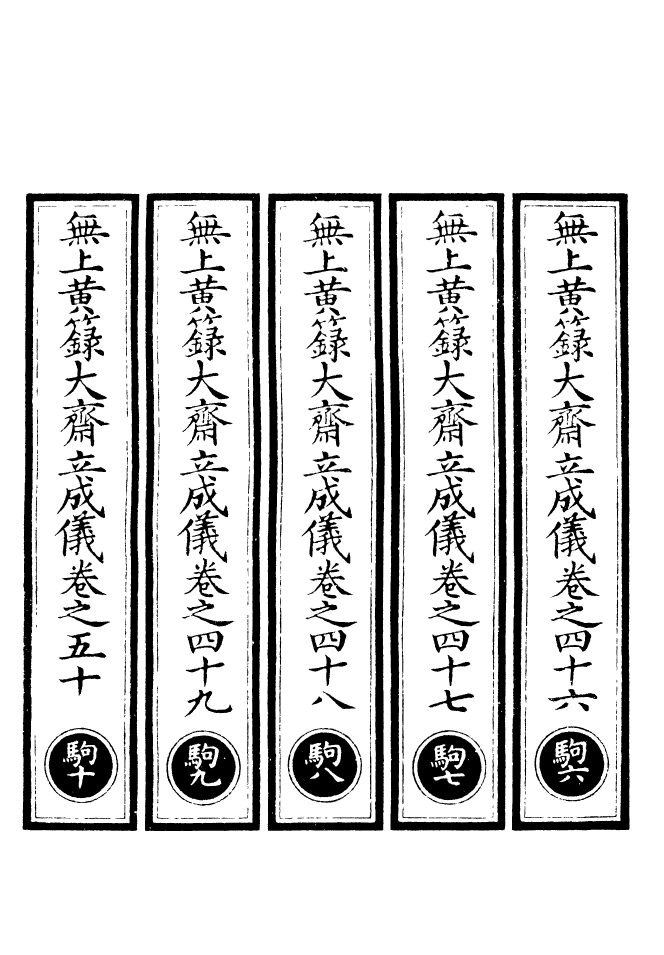 無上黃籙大齋立成儀卷之四十六
駒六
無上黃籙大齋立成儀卷之四十七
駒七
無上黃籙大齋立成儀卷之四十八
駒八
無上黃籙大齋立成儀卷之四十九
駒九
無上黃籙大齋立成儀卷之五十
駒十